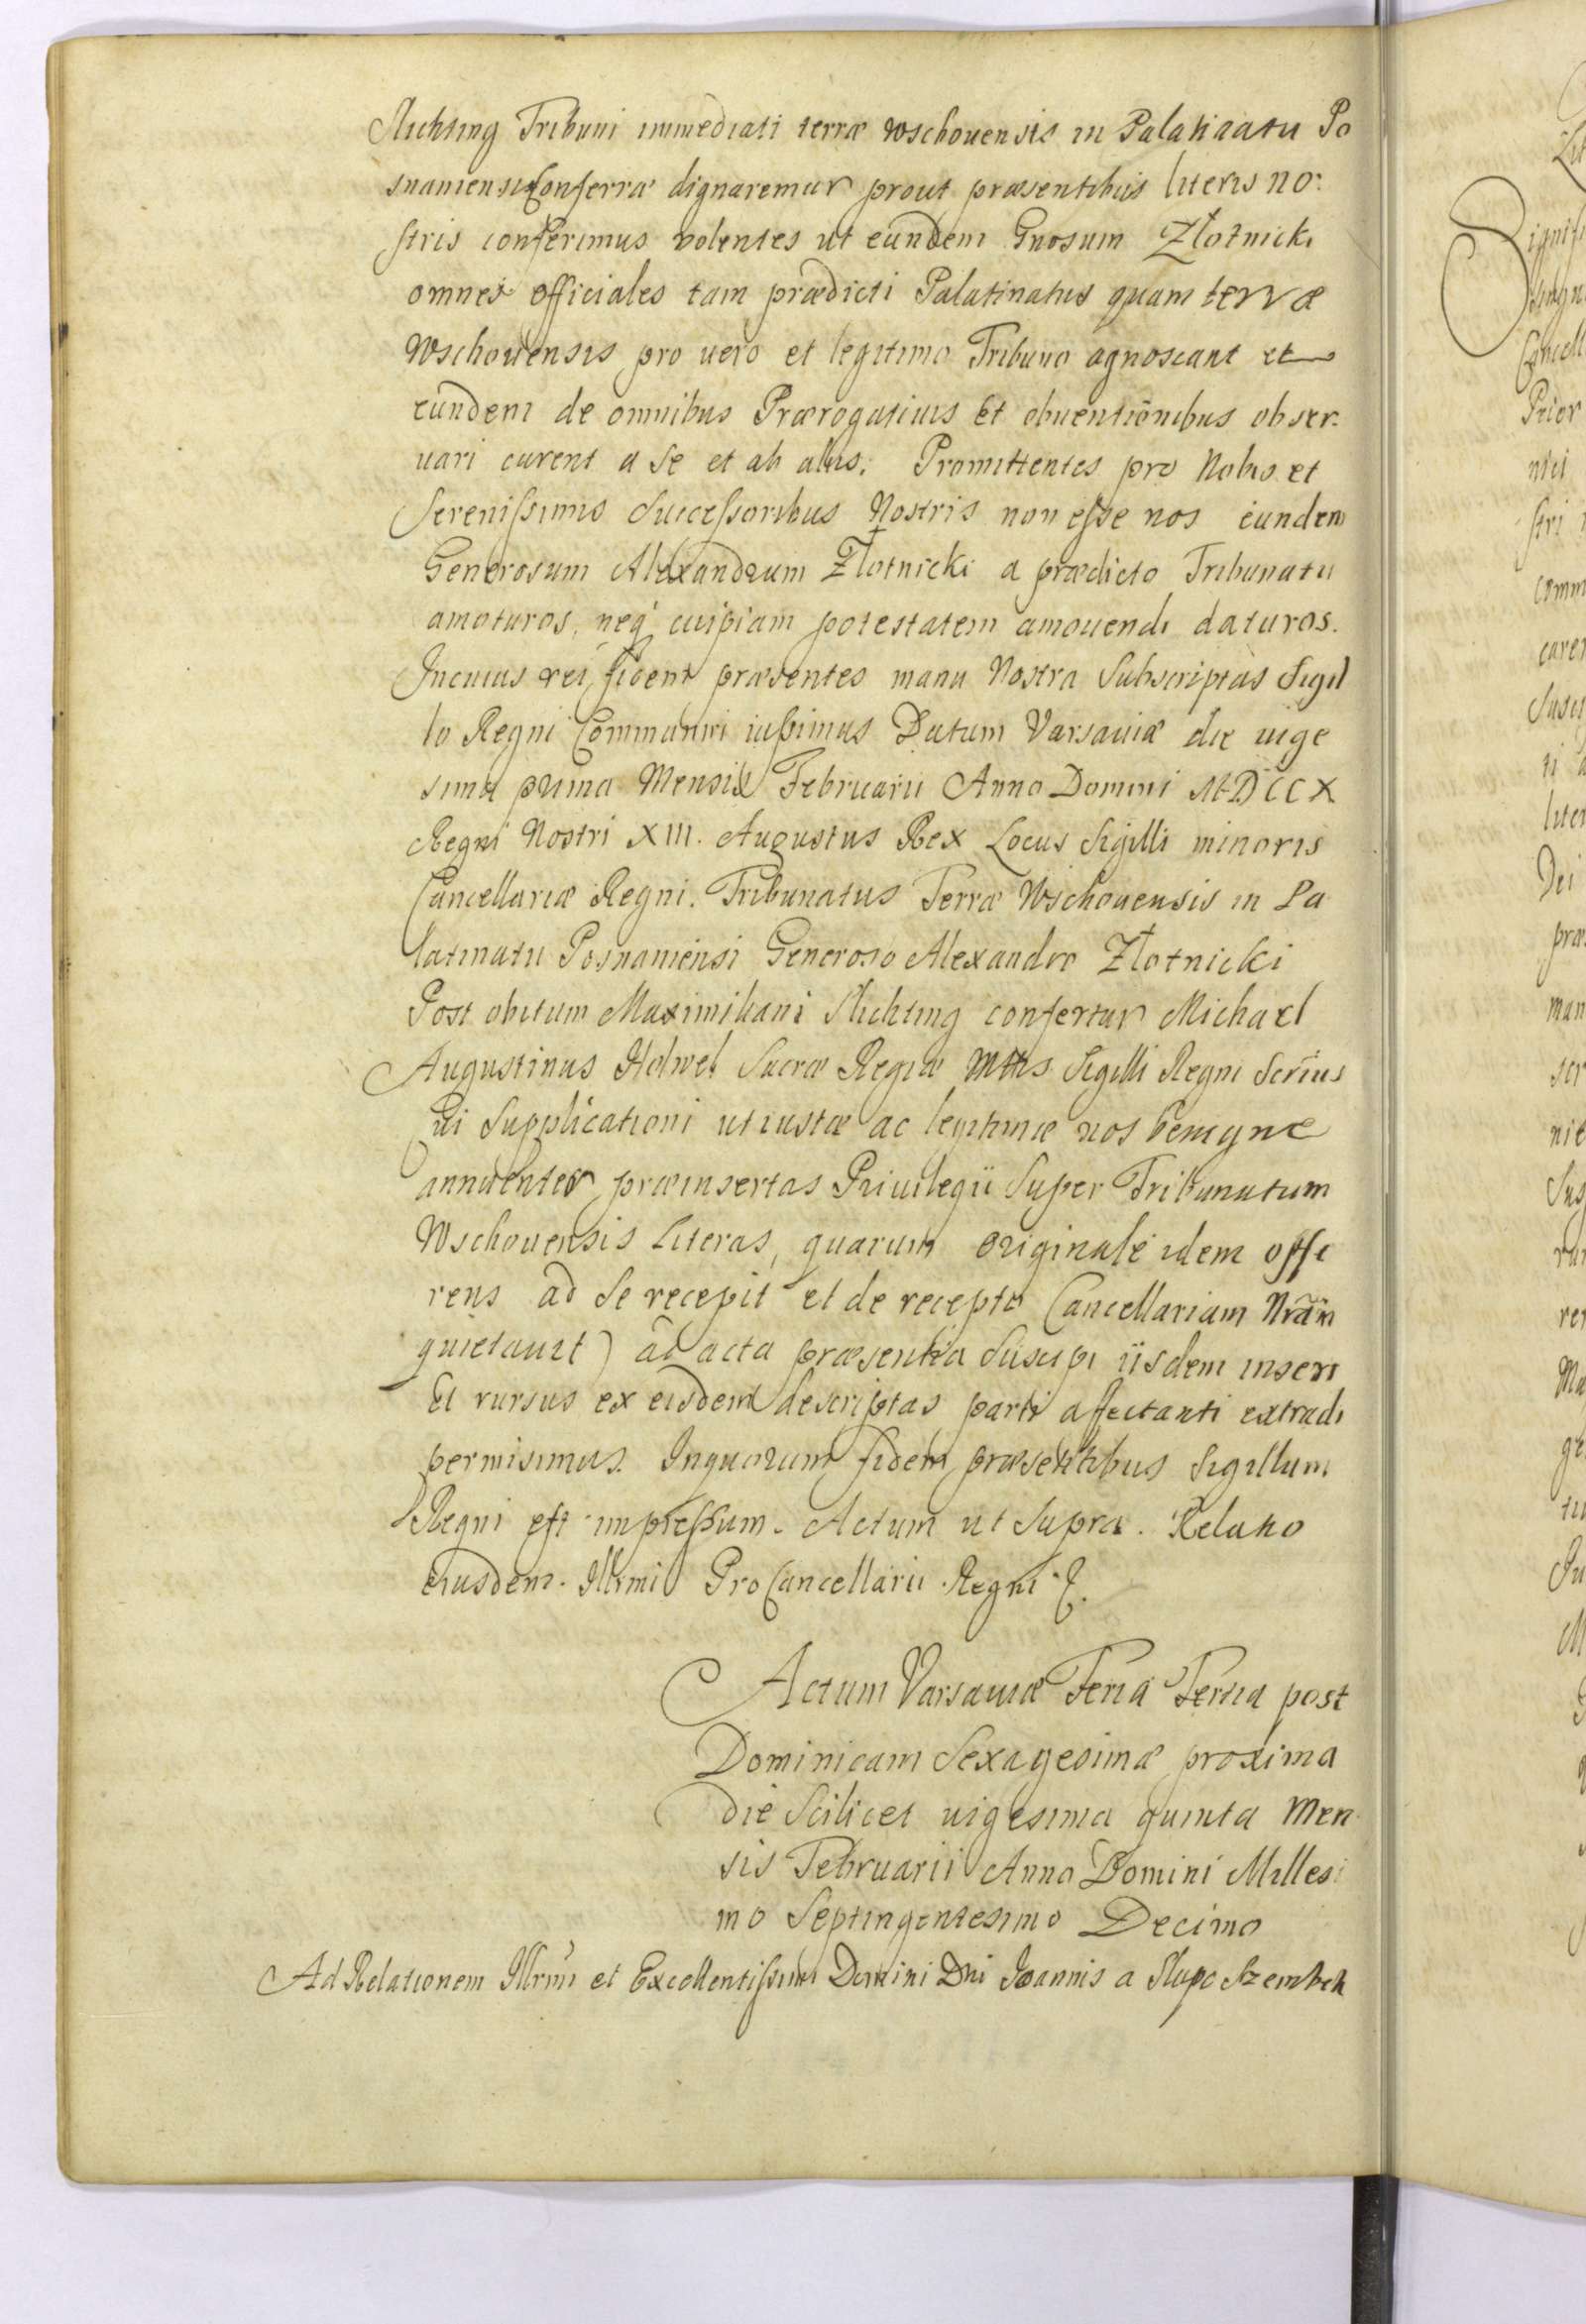 Slichting Tribuni immediati terræ Wschouensis in Palatinatu Po
snaniensi Conferræ dignaremur prout præsentibus literis no:
stris conferimus volentes ut eundem Gnosum Złotnicki
omnes officiales tam prædicti Palatinatus quam terræ
Wschouensis pro uero et legitimo Tribuno agnoscant et
eundem de omnibus Prærogatiuis Et obuentionibus obser:
uari curent a se et ab aliis. Promittentes pro Nobis et
Serenissimis Successoribus Nostris non esse nos eundem
Generosum Alexandrum Złotnicki a prædicto Tribunatu
amoturos, neq́ cuipiam potestatem amouendi daturos.
Incuius rei fidem præsentes manu Nostra Subscriptas Sigil
lo Regni Communiri iussimus Datum Varsauiæ die uige
sima prima Mensis Februarii Anno Domini MDCCX
Regni Nostri XIII. Augustus Rex Locus Sigilli minoris
Cancellariæ Regni. Tribunatus Terræ Wschouensis in Pa
latinatu Posnaniensi Generoso Alexandro Złotnicki
Post obitum Maximiliani Slichting confertur Michael
Augustinus Holwel Sacræ Regiæ Mttis Sigilli Regni Scrius
Cui Supplicationi ut iustæ ac legitimæ nos benigne
annuentes præinsertas Priuilegii Super Tribunatum
Wschouensis Literas, quarum originale idem offe
rens ad se recepit et de recepto Cancellariam Nrãm
quietauit) ad acta præsentia suscipi iisdem inseri
Et rursus ex eisdem descriptas parti affectanti extradi
permisimus. Inquorum fidem præsentibus Sigillum
Regni est impressum. Actum ut Supra. Relatio
eiusdem. Illrmi ProCancellarii Regni
Actum Varsauiæ Feria Tertia post
Dominicam Sexagesimæ proxima
die Scilicet uigesima quinta Men
sis Februarii Anno Domini Millesi
mo Septingentesimo Decimo
Ad Relationem Illrmi et Excellentissimi Domini Dni Joannis a Slupo Szembek